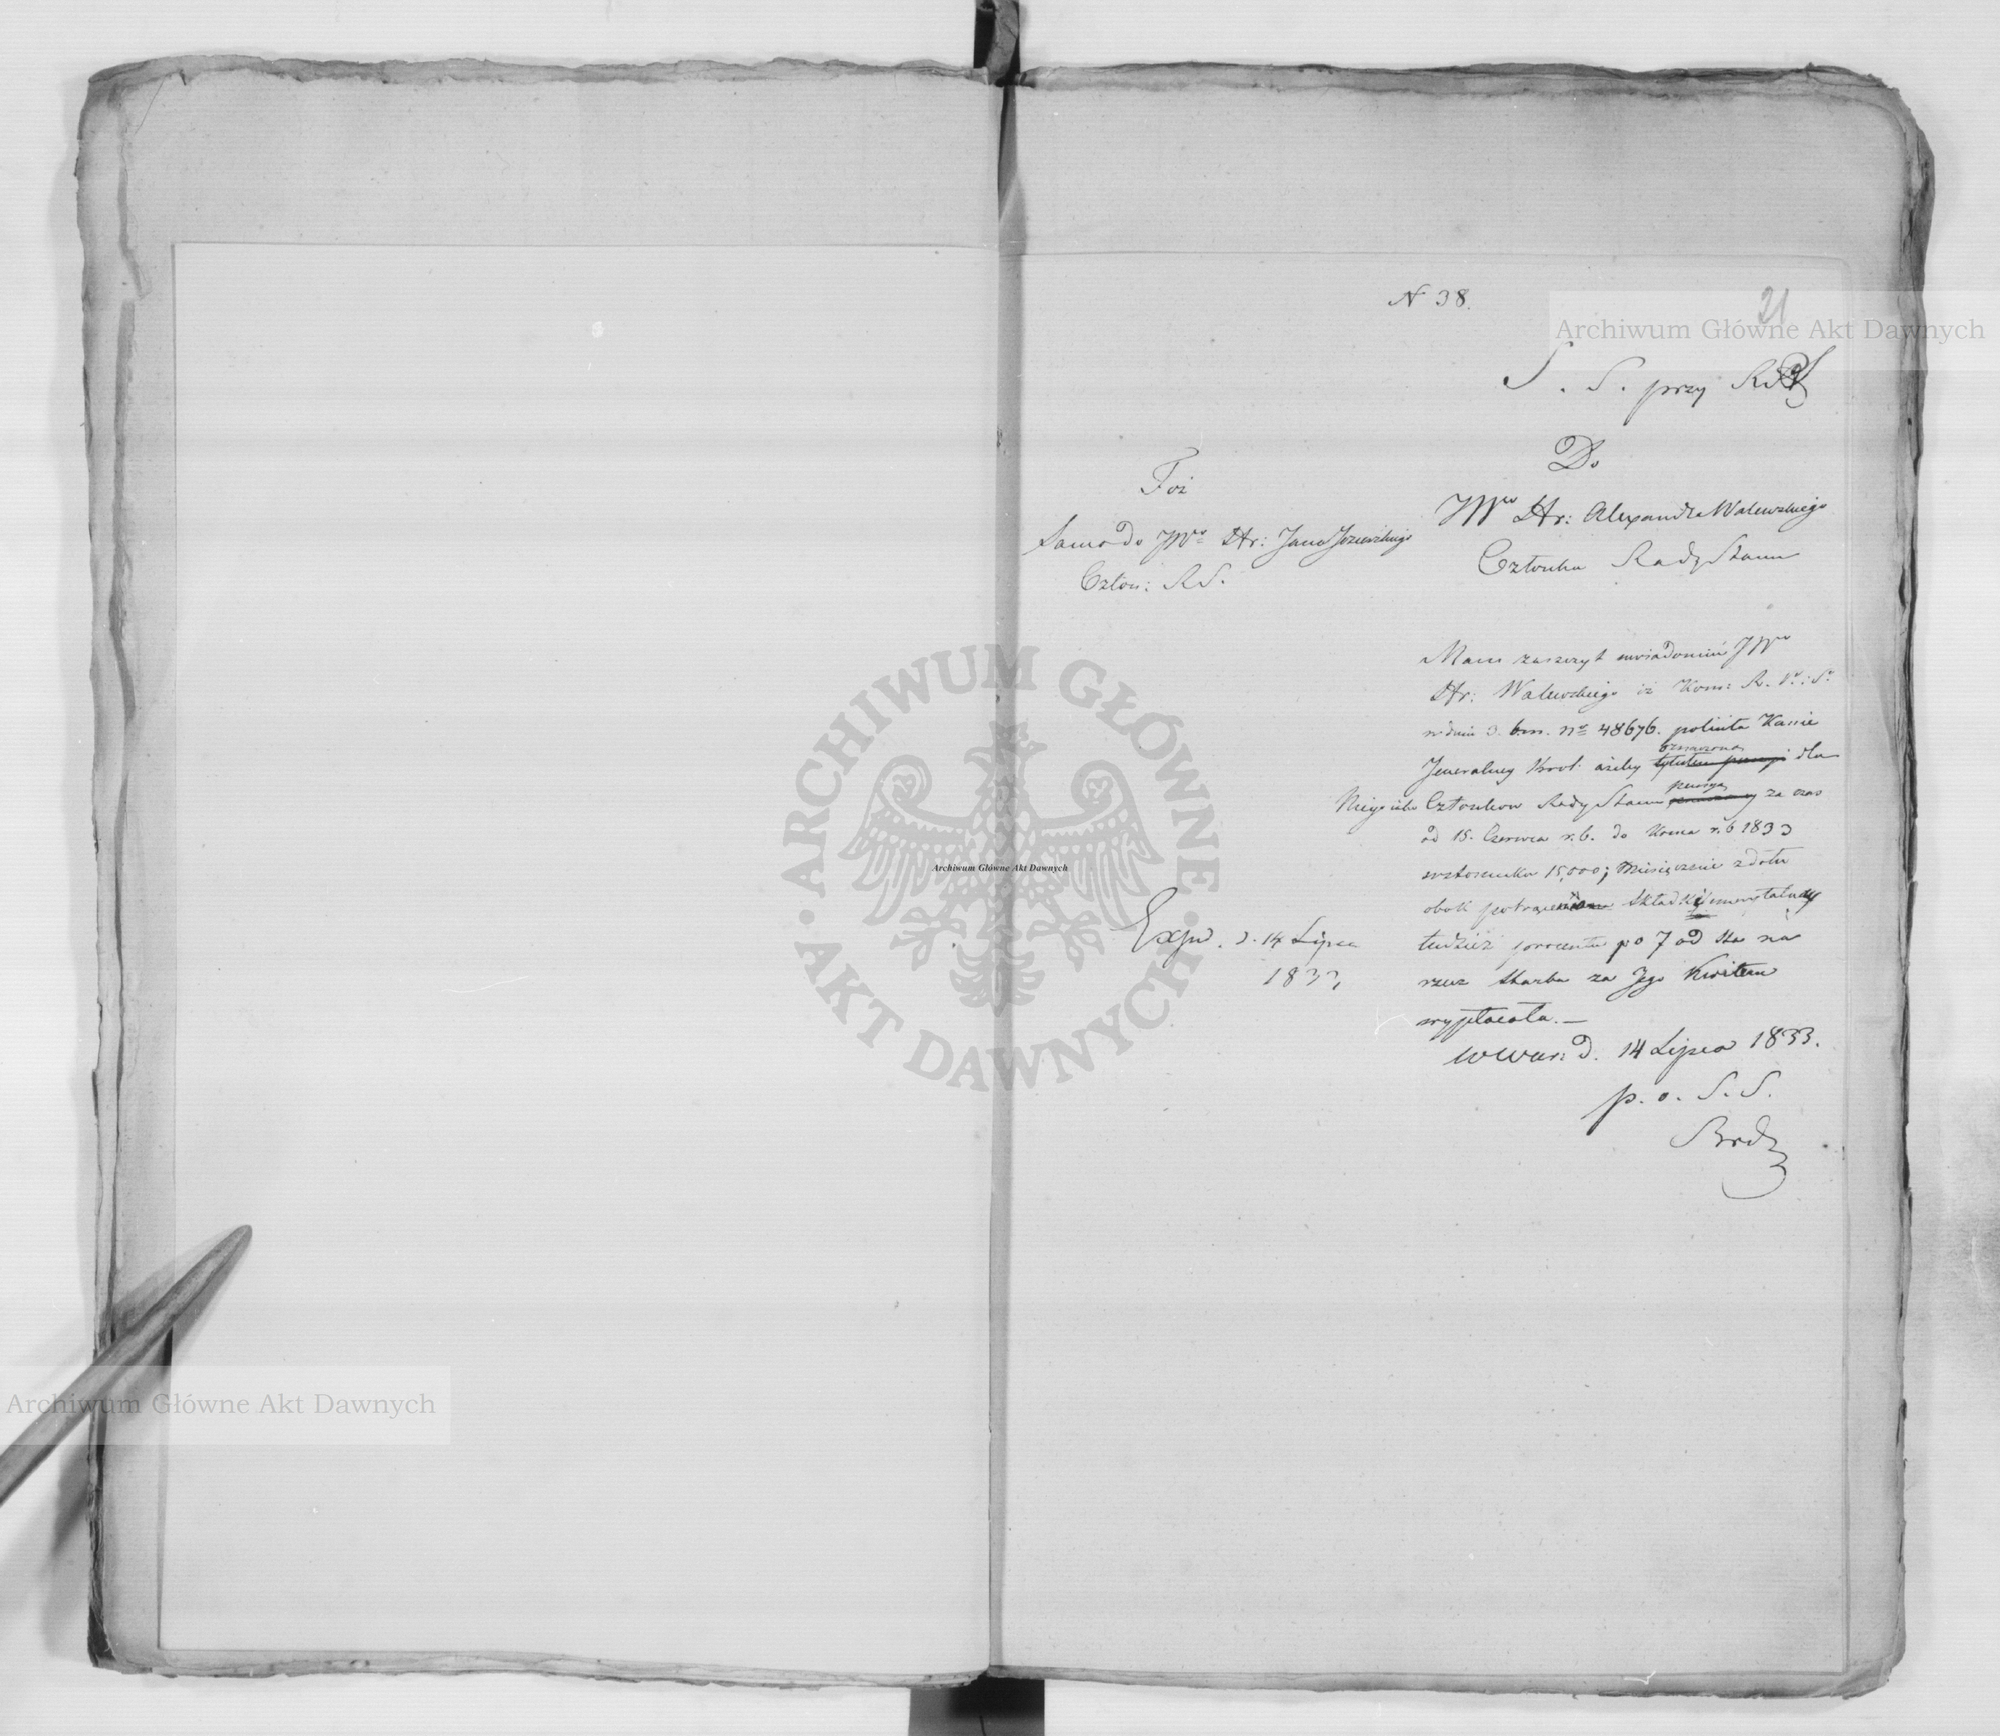 N 38.
21
S. S. przy RS
Do
JWo Hr: Alexandra Walewskiego
Członka Rady Stanu
Toż
Samo do JWo Hr: Jana Jezierskiego
Człon: RS.
Mam zaszczyt uwiadomić JWo
Hr: Walewskiego iż Kom: R. P. i S.
w dniu 3. b.m. No 48676. poleciła Kassie
Jeneralney Król: ażeby oznaczoną dla
Niego jako Członkow Rady Stanu pensyą za czas
od 15. Czerwca r.b. do Końca r.b 1833
w stosunku 15,000; Miesięcznie z dołu
obok potrącenia Składki emerytalney
tudzież procentu po 7 od sta na
rzecz Skarbu za Jego Kwitem
wypłacała. —
w War: d. 14 Lipca 1833.
p. o. S. S.
Exped. d. 14 Lipca
1833,
Archiwum Główne Akt Dawnych
ARCHIWUM GŁÓWNE
AKT DAWNYCH
Archiwum Główne Akt Dawnych
Archiwum Główne Akt Dawnych